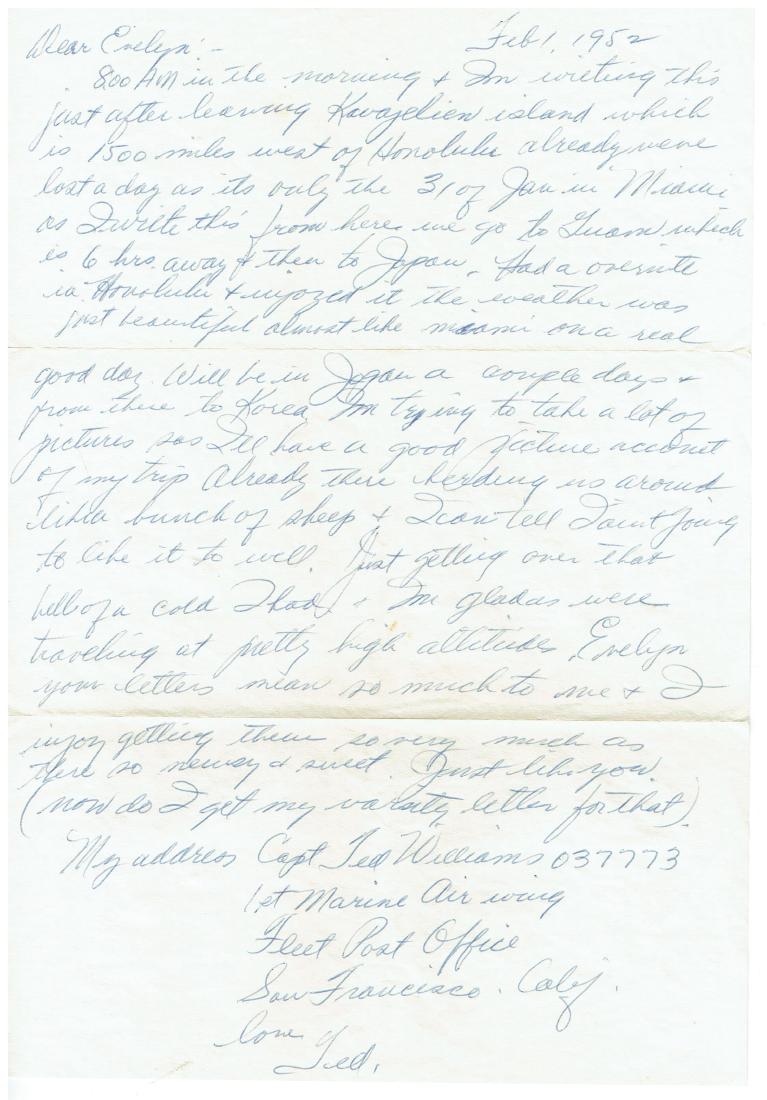 Dear Evelyn:- Feb 1, 1952
800 AM in the morning & Im writing this
just after leaving Kwajelien island which
is 1500 miles west of Honolulu already weve
lost a day as its only the 31 of Jan in Miami
as I write this from here we go to Guam which
is 6 hrs. away & then to Japan. Had a overnite
in Honolulu & injoyed it the weather was
just beautiful almost like miami on a real
good day. Will be in Japan a couple days &
from there to Korea Im trying to take a lot of
pictures sos I'll have a good picture account
of my trip Already there herding us around
like a bunch of sheep & I can tell I aint going
to like it to well. Just getting over that
hell of a cold I had & Im glad as were
traveling at pretty high altitudes. Evelyn
your letters mean so much to me & I
injoy getting them so very much as
there so newsy & sweet. Just like you.
(now do I get my varsity letter for that).
My address Capt Ted Williams 037773
1st Marine Air wing
Fleet Post Office
San Francisco. Calif.
love
Ted.